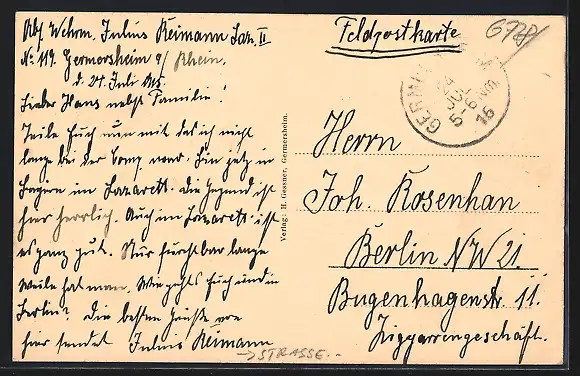 Abs. Wehrm. Julius Reimann Laz. II
No 119. Germersheim a/ Rhein.
d. 24. Juli 1915.
Lieber Hans nebst Familie!
Teile Euch nun mit das ich nicht
lange bei der Comp. war. Bin jetz in
Bayern im Lazarett. die Gegend ist
hier herrlich. Auch im Lazarett ist
es ganz gut. Nur furchtbar lange
Weile hat man. Wie gehts Euch und in
Berlin? Die besten Grüße von
hier sendet Julius Reimann
Verlag: H. Gessner, Germersheim.
Feldpostkarte
GERM
24
JUL
5-6 Vm
15
Herrn
Joh. Rosenhan
Berlin NW 21.
Bugenhagenstr 11.
Ziggarrengeschäft.
→STRASSE..